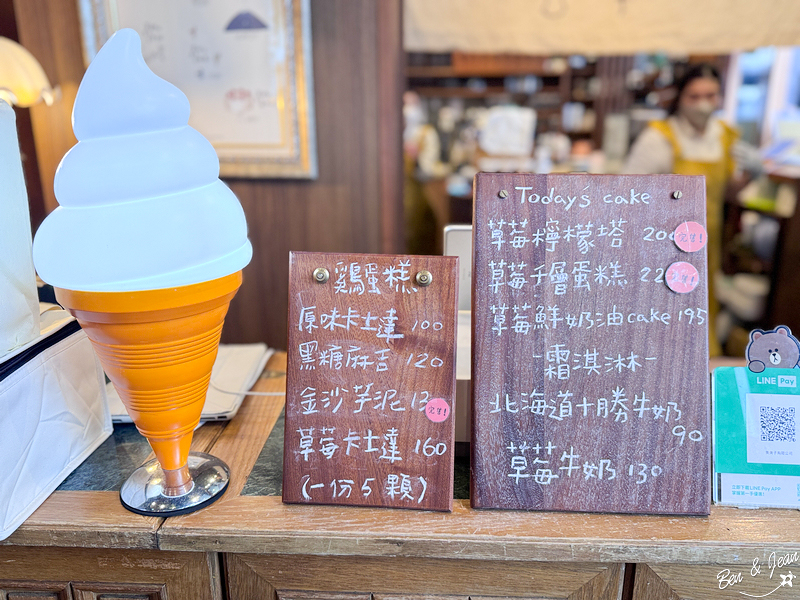 鷄蛋糕
原味卡士達 100
黑糖麻吉 120
金沙芋泥 12
完售!
草莓卡士達 160
(一份5顆)
Today's cake
草莓檸檬塔 200
完售!
草莓千層蛋糕 22
完售!
草莓鮮奶油cake 195
-霜淇淋-
北海道十勝牛奶
90
草莓牛奶 130
LINE Pay
Ben & Jean